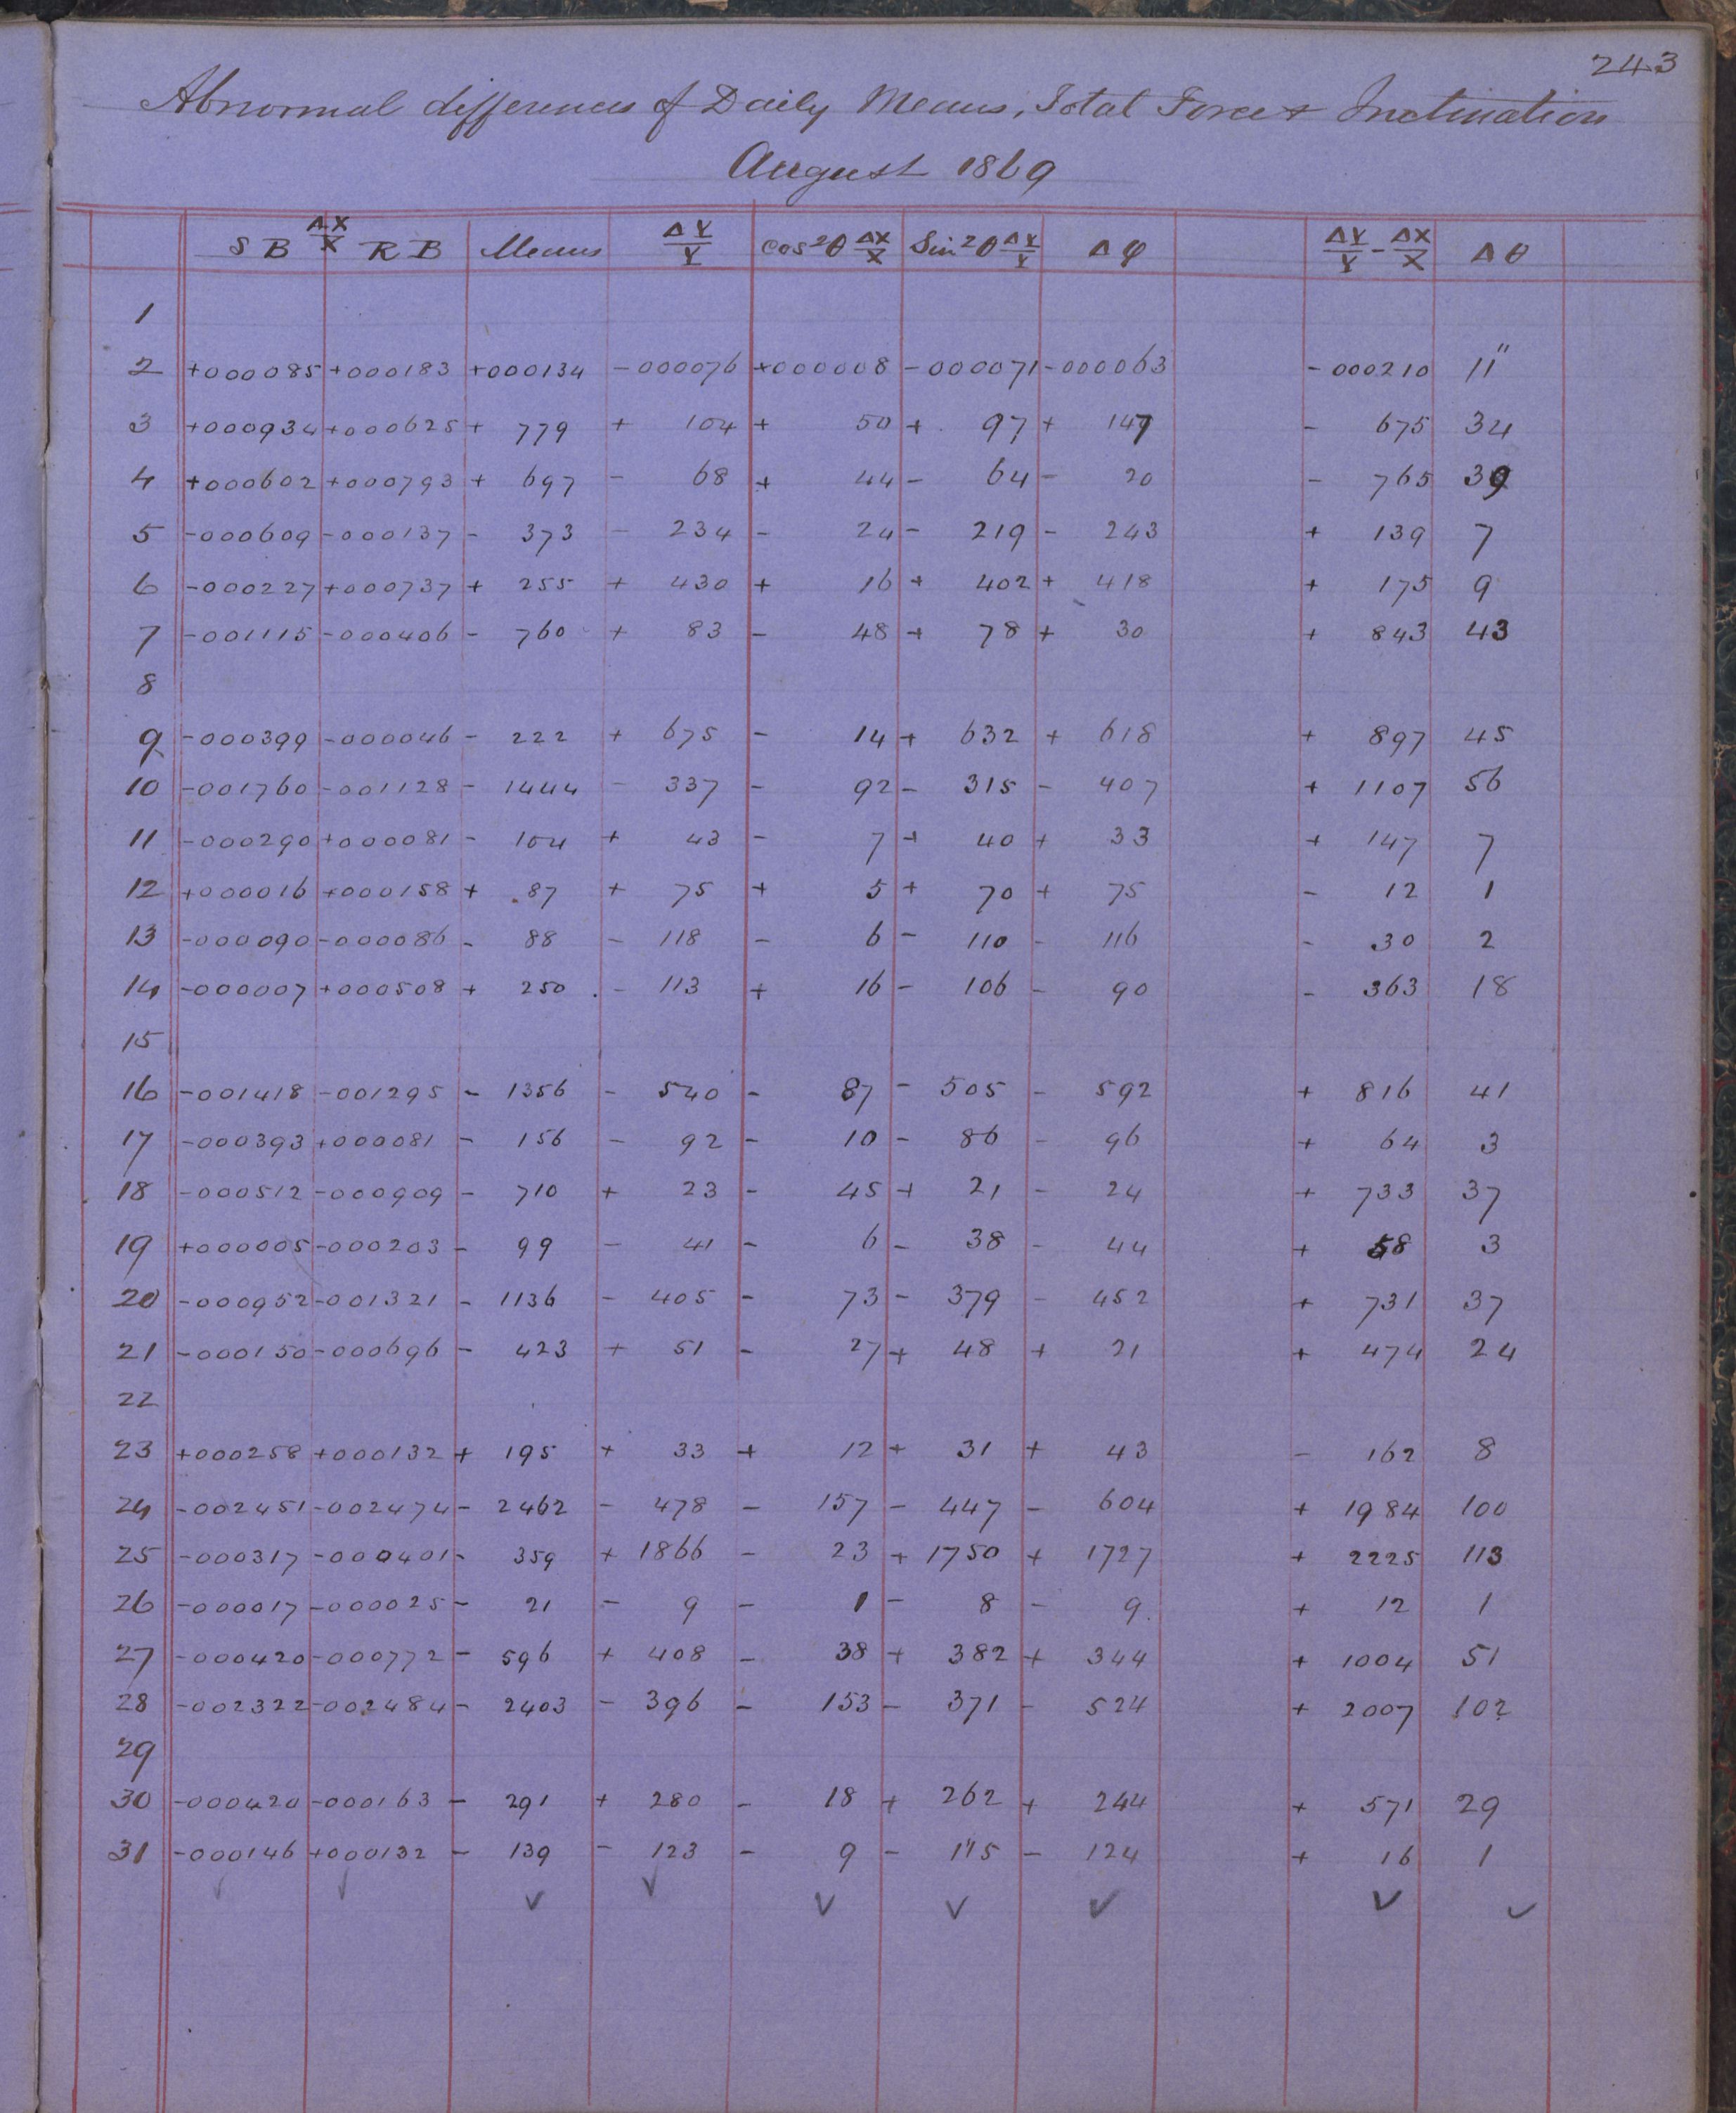 243
Abnormal differences of Daily Means, Total Force & Inclination
August 1869
S B ΔX/X R B Means ΔY/Y cos²θ ΔX/X Sin²θ ΔY/Y Δφ ΔY/Y - ΔX/X Δθ
1
2 +000085 +000183 +000134 -000076 +000008 -000071 -000063 -000210 11"
3 +000934 +000625 + 779 + 104 + 50 + 97 + 147 - 675 34
4 +000602 +000793 + 697 - 68 + 44 - 64 - 20 - 765 39
5 -000609 -000137 - 373 - 234 - 24 - 219 - 243 + 139 7
6 -000227 +000737 + 255 + 430 + 16 + 402 + 418 + 175 9
7 -001115 -000406 - 760 + 83 - 48 + 78 + 30 + 843 43
8
9 -000399 -000046 - 222 + 675 - 14 + 632 + 618 + 897 45
10 -001760 -001128 - 1444 - 337 - 92 - 315 - 407 + 1107 56
11 -000290 +000081 - 104 + 43 - 7 + 40 + 33 + 147 7
12 +000016 +000158 + 87 + 75 + 5 + 70 + 75 - 12 1
13 -000090 -000086 - 88 - 118 - 6 - 110 - 116 - 30 2
14 -000007 +000508 + 250 - 113 + 16 - 106 - 90 - 363 18
15
16 -001418 -001295 - 1356 - 540 - 87 - 505 - 592 + 816 41
17 -000393 +000081 - 156 - 92 - 10 - 86 - 96 + 64 3
18 -000512 -000909 - 710 + 23 - 45 + 21 - 24 + 733 37
19 +000005 -000203 - 99 - 41 - 6 - 38 - 44 + 58 3
20 -000952 -001321 - 1136 - 405 - 73 - 379 - 452 + 731 37
21 -000150 -000696 - 423 + 51 - 27 + 48 + 21 + 474 24
22
23 +000258 +000132 + 195 + 33 + 12 + 31 + 43 - 162 8
24 -002451 -002474 - 2462 - 478 - 157 - 447 - 604 + 1984 100
25 -000317 -000401 - 359 + 1866 - 23 + 1750 + 1727 + 2225 113
26 -000017 -000025 - 21 - 9 - 1 - 8 - 9 + 12 1
27 -000420 -000772 - 596 + 408 - 38 + 382 + 344 + 1004 51
28 -002322 -002484 - 2403 - 396 - 153 - 371 - 524 + 2007 102
29
30 -000420 -000163 - 291 + 280 - 18 + 262 + 244 + 571 29
31 -000146 +000132 - 139 - 123 - 9 - 115 - 124 + 16 1
✓ ✓ ✓ ✓ ✓ ✓ ✓ ✓ ✓